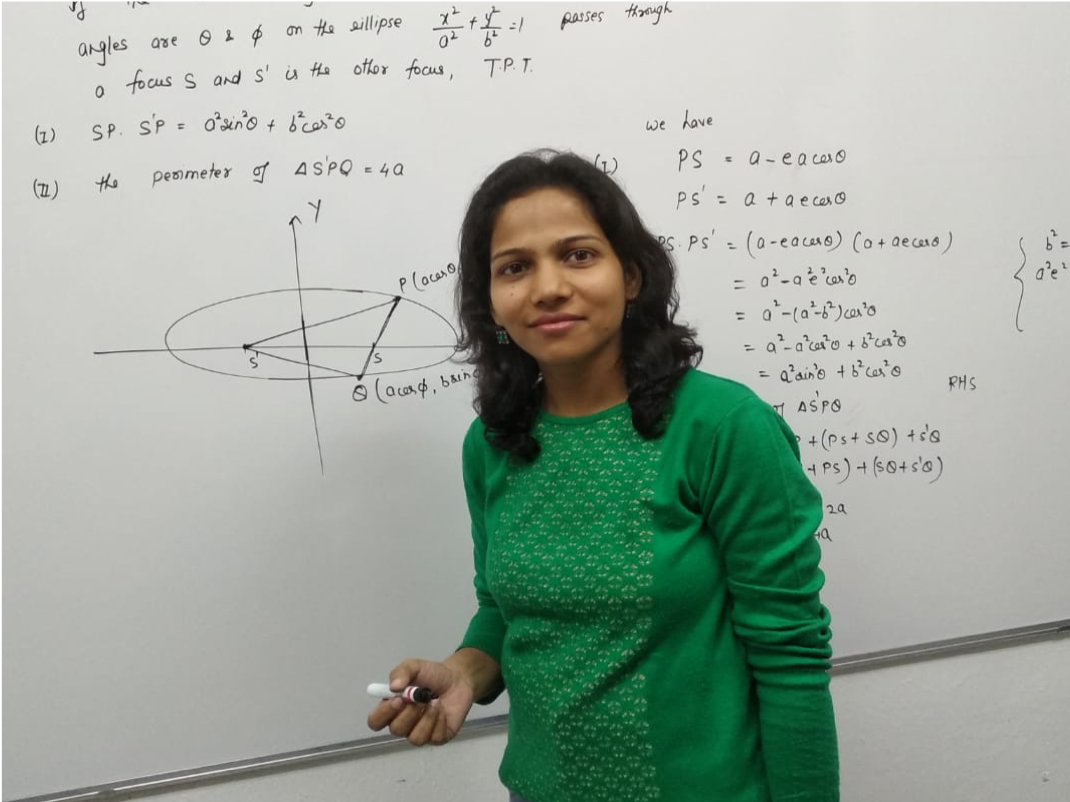 angles are θ & ϕ on the eillipse x²/a² + y²/b² = 1 passes through
a focus S and S' is the other focus, T.P.T.
(I) SP. S'P = a²sin²θ + b²cos²θ
(II) the perimeter of ΔS'PQ = 4a
Y
P (acosθ
S'
S
Q (acosϕ, bsin
we have
(I) PS = a - eacosθ
PS' = a + aecosθ
PS. PS' = (a-eacosθ) (a+aecosθ)
= a² - a²e²cos²θ
= a² - (a²-b²)cos²θ
= a² - a²cos²θ + b²cos²θ
= a²sin²θ + b²cos²θ RHS
{ b² =
a²e²
ΔS'PQ
+ (PS + SQ) + S'Q
+ PS) + (SQ + S'Q)
2a
a